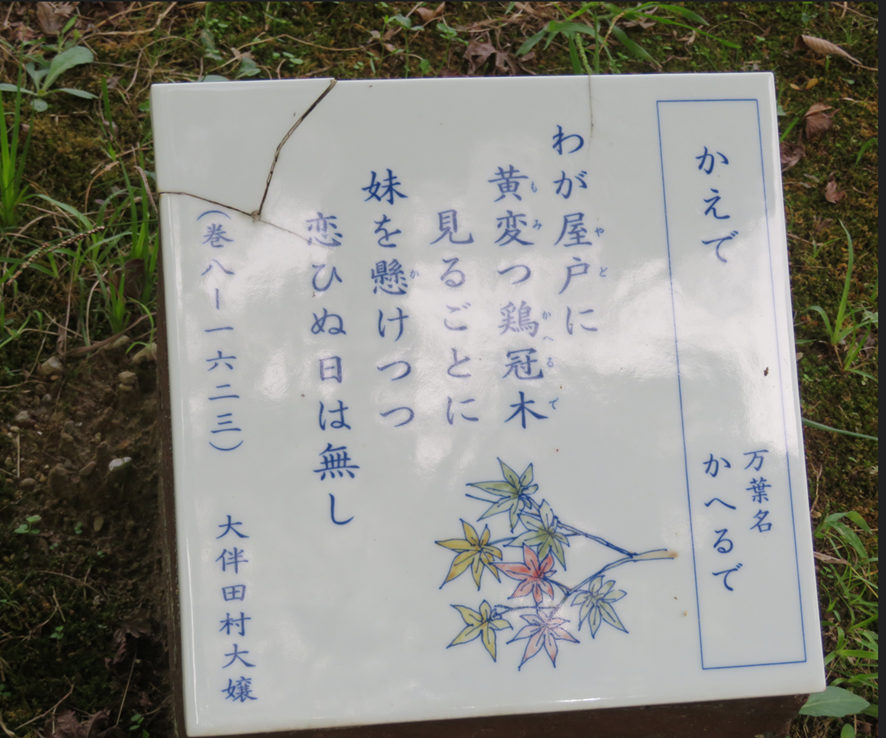 かえで
万葉名
かへるで
わが屋戸に
やど
黄変つ鶏冠木
もみ
かへるで
見るごとに
妹を懸けつつ
か
恋ひぬ日は無し
(巻八ー一六二三)
大伴田村大嬢